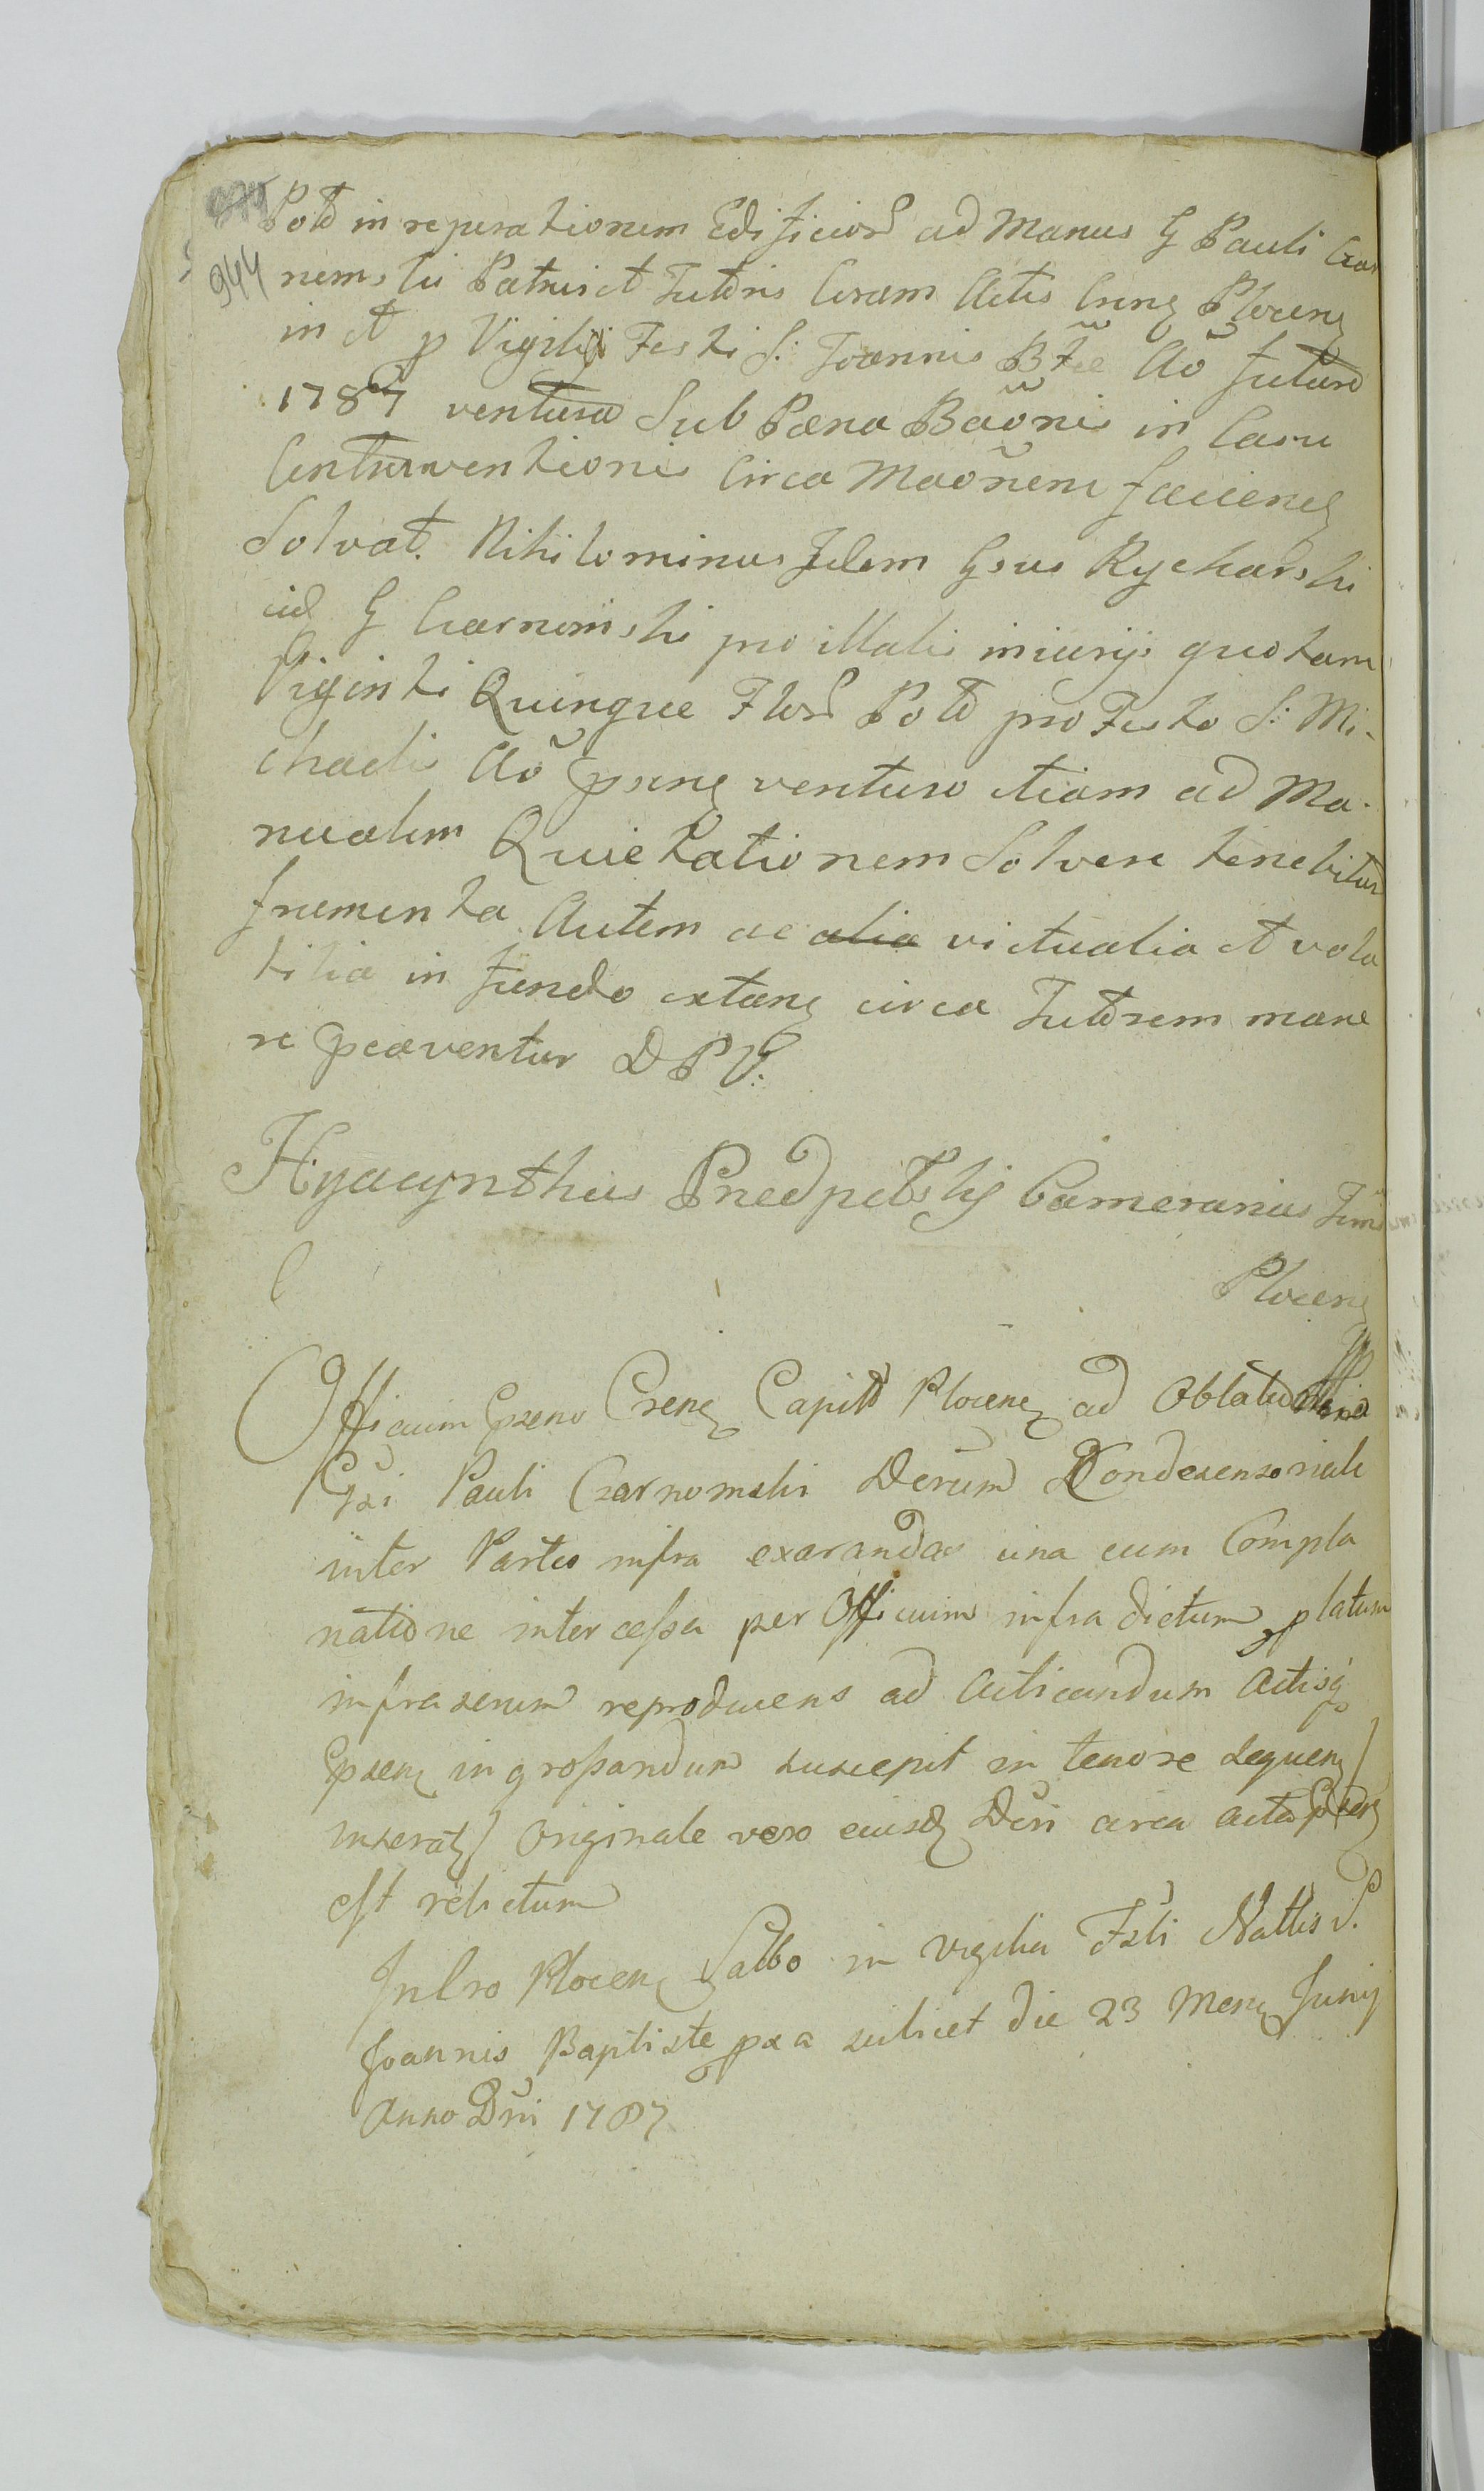 944
Pold in reperationem Edificior ad Manus G Pauli Czar
nomski Patrui et Tutoris Coram Actis Crens Plocens
in et p Vigilia Festi S: Joannis Btae Aõ futuro
1787 ventura Sub Pæna Baõnis in Casu
Contraventionis Circa Maõnem faciens
Solvat. Nihilominus Idem Gsus Rycharski
eid G Czarnomski pro illatis iniurijs quotam
Viginti Quinque Flor Pold pro Festo S: Mi-
chaelis Aõ psens venturo etiam ad Ma-
nualem Quietationem Solvere tenebitur
frumenta Autem ac alia victualia et vola
tilia in fundo extans circa Tutorem mane
re pcaventur D P V:
Hyacynthus Przedpełskij Camerarius
Plocens
Officium psens Crens Capitl Plocens ad Oblatam
Gsi Pauli Czarnomski Derum Condescensoriale
inter Partes infra exarandas una cum Compla
natione intercessa per Officium infra dictum platum
infraserum reproducens ad acticandum actisq
psens ingrossandum suscepit in tenore sequens
inserat) Originale vero eiusd Dri circa acta psens
est relictum
In Cro Plocens Sabbo in Vigilia Fsti Nattis S.
Joannis Baptiste pxa scilicet die 23 Mens Junij
Anno Dni 1787